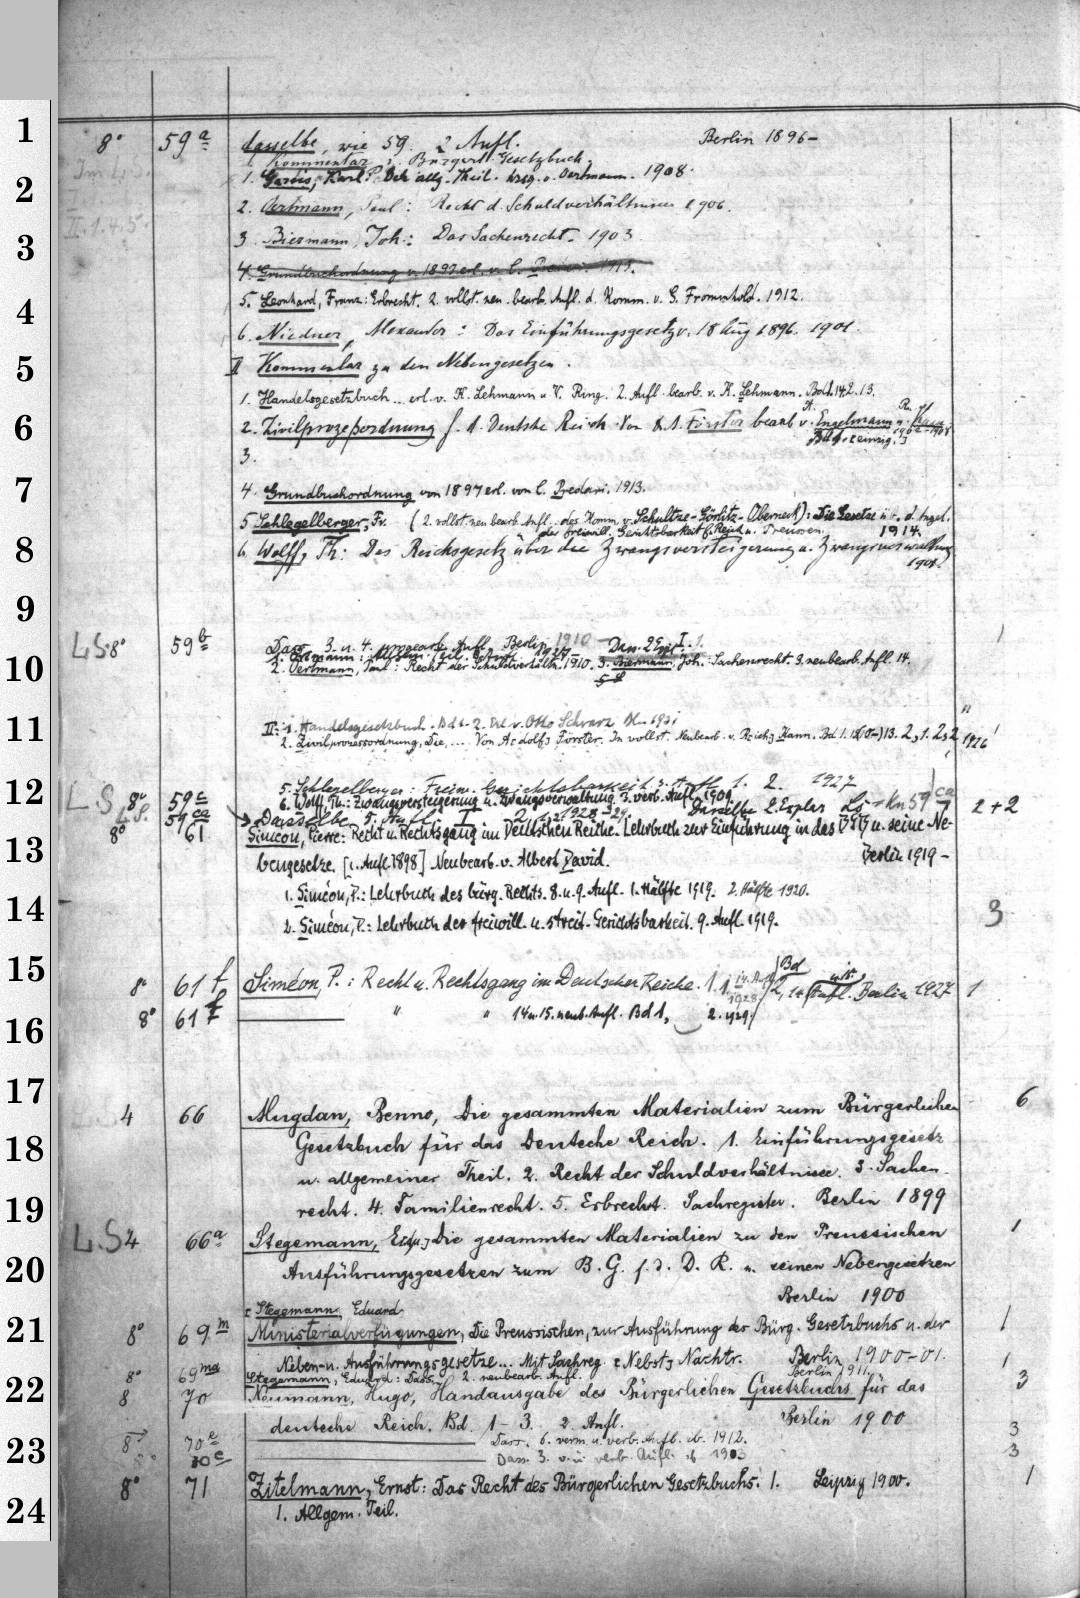 1
8° 59a dasselbe, wie 59. 2 Aufl. Berlin 1896-
I. Kommentar z. Bürgerl. Gesetzbuch.
1. Gareis, Karl: Der allg. Theil. hrsg. v. Oertmann. 1908.
2
2. Oertmann, Paul: Recht d. Schuldverhältnisse 1906.
II. 1. 4. 5.
3
3. Biermann, Joh.: Das Sachenrecht. 1903.
4. Grundbuchordnung v. 1897 erl. v. C. Predari. 1913.
4
5. Leonhard, Franz: Erbrecht. 2. vollst. neu bearb. Aufl. d. Komm. v. G. Frommhold. 1912.
6. Niedner, Alexander: Das Einführungsgesetz v. 18 Aug 1896. 1901.
5
II Kommentar zu den Nebengesetzen.
1. Handelsgesetzbuch... erl. v. K. Lehmann u V. Ring. 2. Aufl. bearb. v. K. Lehmann. Bd 1. 14. 2. 13.
6
2. Zivilprozeßordnung f. d. Deutsche Reich. Von A. Förster bearb v. Engelmann u. Kann
3.
7
4. Grundbuchordnung von 1897 erl. von C. Predari. 1913.
5 Schlegelberger, Fr. (2. vollst. neu bearb. Aufl. des Komm. v. Schultze-Görlitz-Oberneck): Die Gesetze ü. d. Angel.
8
der freiwill. Gerichtsbarkeit f. Reich u. Preussen. 1914.
6. Wolff, Th: Das Reichsgesetz über die Zwangsversteigerung u. Zwangsverwaltung
1901.
9
L.S. 8° 59b Dass. 3. u. 4. umgearb. Aufl. Berlin 1910 - Dass. 2 Expl. I. 1. 1
10
2. Oertmann, Paul: Recht der Schuldverhältn. 1910. 3. Biermann, Joh.: Sachenrecht. 3. neubearb. Aufl. 14.
11
II: 1. Handelsgesetzbuch. Bd 1-2. Erl. v. Otto Schwarz
2. Zivilprozessordnung, Die, .... Von Adolf Förster. In vollst. Neubearb. v. Rich. Kann. Bd 1. 13. 2, 1. 2, 2 1926
12
5. Schlegelberger: Freiw. Gerichtsbarkeit 3. Aufl. 1. 2. 1927
L.S. 8° 59c 6. Wolff, Th.: Zwangsversteigerung u. Zwangsverwaltung. 3. verb. Aufl. 1909.
L.S. 59ca Dasselbe 5. Aufl. I 2, 1928-29. Dasselbe 2. Explar 2 + 2
8° 61 Siméon, Pierre: Recht u. Rechtsgang im Deutschen Reiche. Lehrbuch zur Einführung in das BGB u. seine Ne-
13
bengesetze. [1. Aufl. 1898] Neubearb. v. Albert David. Berlin 1919 -
1. Siméon, P.: Lehrbuch des bürg. Rechts. 8. u. 9. Aufl. 1. Hälfte 1919. 2. Hälfte 1920.
14
2. Siméon, P.: Lehrbuch der freiwill. u. streit. Gerichtsbarkeit. 9. Aufl. 1919. 3
15
8° 61 f Siméon, P.: Recht u. Rechtsgang im Deutschen Reiche. Bd Aufl. Berlin 1927 1
8° 61 " " 14 u. 15. neub. Aufl. Bd 1, 2. 1929.
16
17
4 66 Mugdan, Benno, Die gesammten Materialien zum Bürgerlichen 6
18
Gesetzbuch für das Deutsche Reich. 1. Einführungsgesetz
u. allgemeiner Theil. 2. Recht der Schuldverhältnisse. 3. Sachen
19
recht. 4. Familienrecht. 5. Erbrecht. Sachregister. Berlin 1899
L.S. 4 66a Stegemann, Die gesammten Materialien zu den Preussischen 1
20
Ausführungsgesetzen zum B. G. f. d. D. R. u. seinen Nebengesetzen
Berlin 1900
Stegemann, Eduard
21
8° 69m Ministerialverfügungen, Die Preussischen, zur Ausführung des Bürg. Gesetzbuchs u. der 1
Neben- u. Ausführungsgesetze... Mit Sachreg. Nebst Nachtr. Berlin 1900-01.
8° 69ma Stegemann, Eduard: Dass. 2. neubearb. Aufl. Berlin 1911. 1
22
8 70 Neumann, Hugo, Handausgabe des Bürgerlichen Gesetzbuchs für das 3
deutsche Reich. Bd. 1-3. 2. Aufl. Berlin 1900
23
8° 70e Dass. 6. verm. u. verb. Aufl. 1912. 3
70c Dass. 3. verb. Aufl. 1903 3
8° 71 Zitelmann, Ernst: Das Recht des Bürgerlichen Gesetzbuchs. 1. Leipzig 1900. 1
24
1. Allgem. Teil.